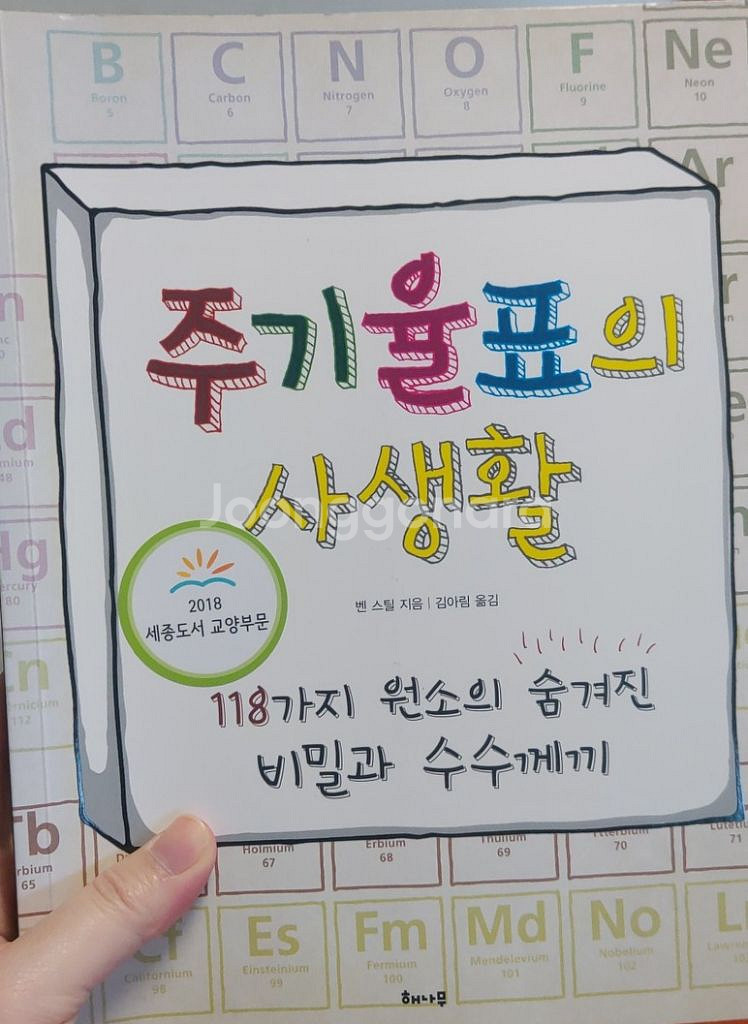 B C N O F Ne
Boron Carbon Nitrogen Oxygen Fluorine Neon
5 6 7 8 9 10
Ar
주기율표의
사생활
Joonggonara
2018
세종도서 교양부문
벤 스틸 지음 | 김아림 옮김
118가지 원소의 숨겨진
비밀과 수수께끼
Hg
80
112
Tb
65
Holmium Erbium Thulium Ytterbium
67 68 69 70 71
Cf Es Fm Md No
Californium Einsteinium Fermium Mendelevium Nobelium
98 99 100 101 102
해나무